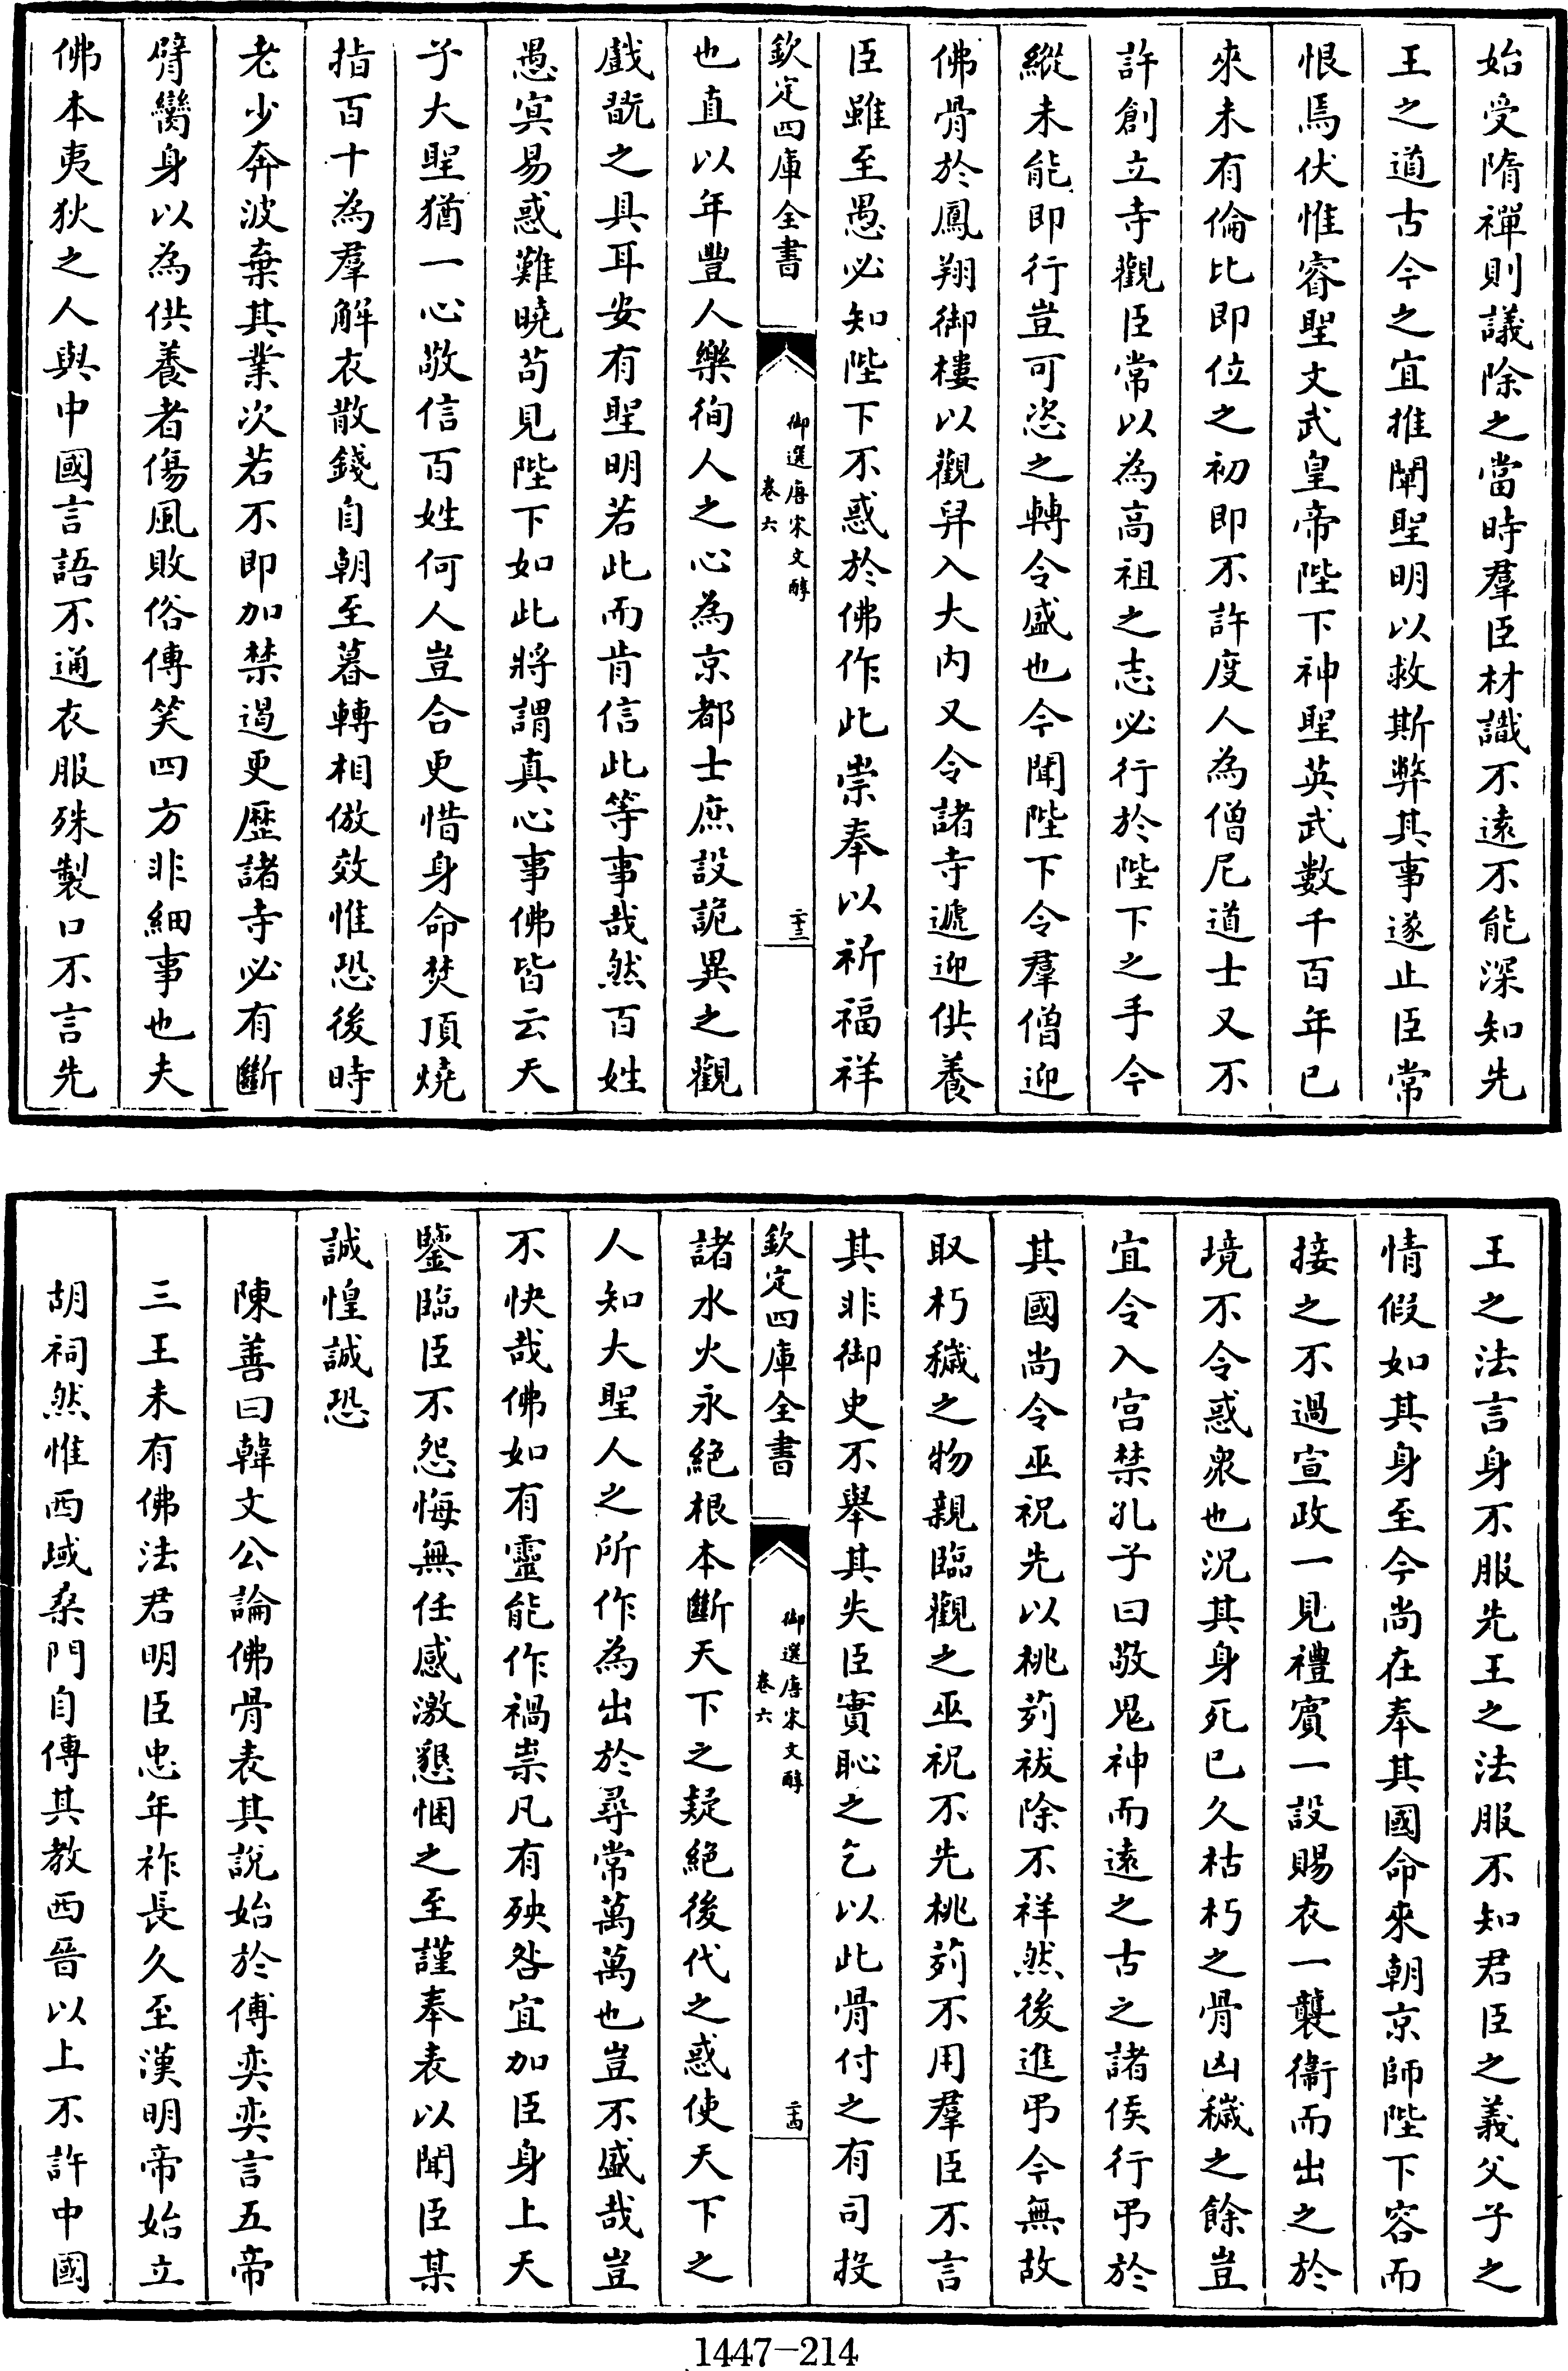 始受隋禪則議除之當時羣臣材識不遠不能深知先
王之道古今之宜推闡聖明以救斯弊其事遂止臣常
恨焉伏惟睿聖文武皇帝陛下神聖英武數千百年已
來未有倫比即位之初即不許度人為僧尼道士又不
許創立寺觀臣常以為高祖之志必行於陛下之手今
縱未能即行豈可恣之轉令盛也今聞陛下令羣僧迎
佛骨於鳳翔御樓以觀舁入大內又令諸寺遞迎供養
臣雖至愚必知陛下不惑於佛作此崇奉以祈福祥
欽定四庫全書
御選唐宋文醇
卷六
二十三
也直以年豐人樂徇人之心為京都士庶設詭異之觀
戲翫之具耳安有聖明若此而肯信此等事哉然百姓
愚冥易惑難曉茍見陛下如此將謂真心事佛皆云天
子大聖猶一心敬信百姓何人豈合更惜身命焚頂燒
指百十為羣解衣散錢自朝至暮轉相倣效惟恐後時
老少奔波棄其業次若不即加禁遏更歷諸寺必有斷
臂臠身以為供養者傷風敗俗傳笑四方非細事也夫
佛本夷狄之人與中國言語不通衣服殊製口不言先
王之法言身不服先王之法服不知君臣之義父子之
情假如其身至今尚在奉其國命來朝京師陛下容而
接之不過宣政一見禮賓一設賜衣一襲衞而出之於
境不令惑衆也況其身死已久枯朽之骨凶穢之餘豈
宜令入宮禁孔子曰敬鬼神而遠之古之諸侯行弔於
其國尚令巫祝先以桃茢祓除不祥然後進弔今無故
取朽穢之物親臨觀之巫祝不先桃茢不用羣臣不言
其非御史不舉其失臣實恥之乞以此骨付之有司投
欽定四庫全書
御選唐宋文醇
卷六
二十四
諸水火永絕根本斷天下之疑絕後代之惑使天下之
人知大聖人之所作為出於尋常萬萬也豈不盛哉豈
不快哉佛如有靈能作禍祟凡有殃咎宜加臣身上天
鑒臨臣不怨悔無任感激懇悃之至謹奉表以聞臣某
誠惶誠恐
陳善曰韓文公論佛骨表其說始於傅奕奕言五帝
三王未有佛法君明臣忠年祚長久至漢明帝始立
胡祠然惟西域桑門自傳其教西晉以上不許中國
1447-214